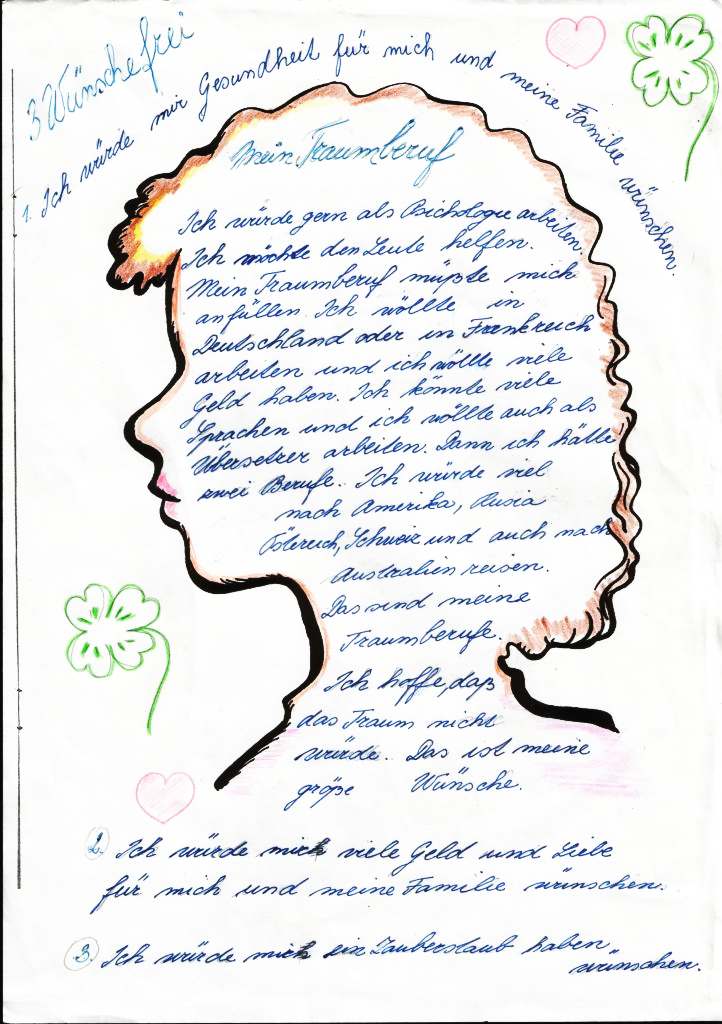 3 Wünsche frei
1. Ich würde mir Gesundheit für mich und meine Familie wünschen.
Mein Traumberuf
Ich würde gern als Psichologe arbeiten.
Ich möchte den Leute helfen.
Mein Traumberuf müßte mich
anfüllen. Ich wöllte in
Deutschland oder in Frankreich
arbeiten und ich wöllte viele
Geld haben. Ich könnte viele
Sprachen und ich wöllte auch als
Übersetzer arbeiten. Dann ich hätte
zwei Berufe. Ich würde viel
nach Amerika, Rusia
Östereich, Schweiz und auch nach
Australien reisen.
Das sind meine
Traumberufe.
Ich hoffe, daß
das Traum nicht
würde. Das ist meine
größe Wünsche.
2. Ich würde mich viele Geld und Liebe
für mich und meine Familie wünschen.
3. Ich würde mich ein Zauberstaub haben
wünschen.